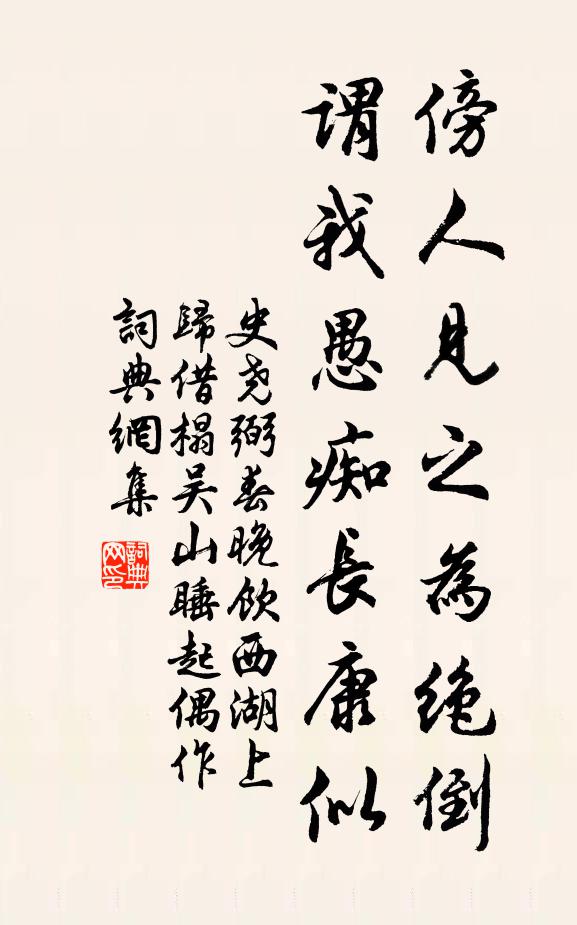 傍人見之為絶倒
謂我愚痴長康似
史堯弼春晚飲西湖上
歸借榻吴山睡起偶作
詞典網集
詞典
网印